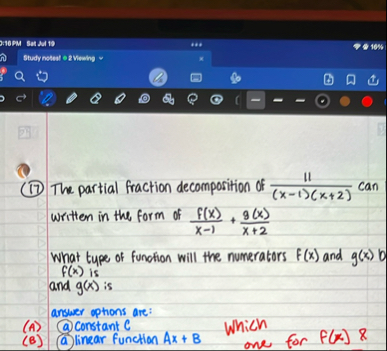 0:16 PM Sat Jul 19 16%
Study notes! 2 Viewing
17 The partial fraction decomposition of 11/((x-1)(x+2)) can
written in the form of f(x)/(x-1) + g(x)/(x+2)
What type of function will the numerators f(x) and g(x) b
f(x) is
and g(x) is
answer options are:
(A) a constant C
(B) a linear function Ax + B
Which
one for f(x) &